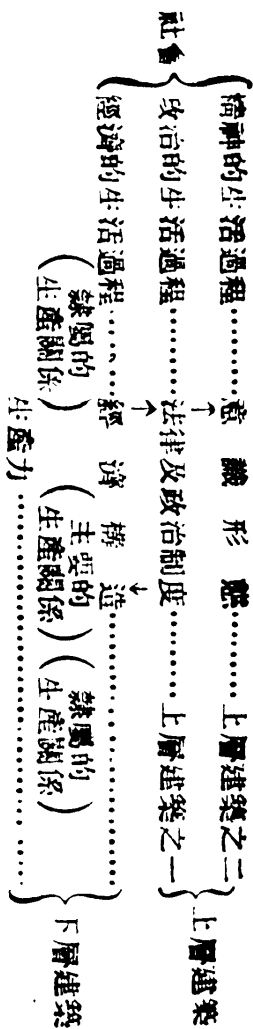 社會
精神的生活過程……意識形態……上層建築之二
上層建築
↑
政治的生活過程……法律及政治制度……上層建築之一
↑
經濟的生活過程……經濟構造……
下層建築
(隸屬的生產關係)(主要的生產關係)(隸屬的生產關係)
生產力……